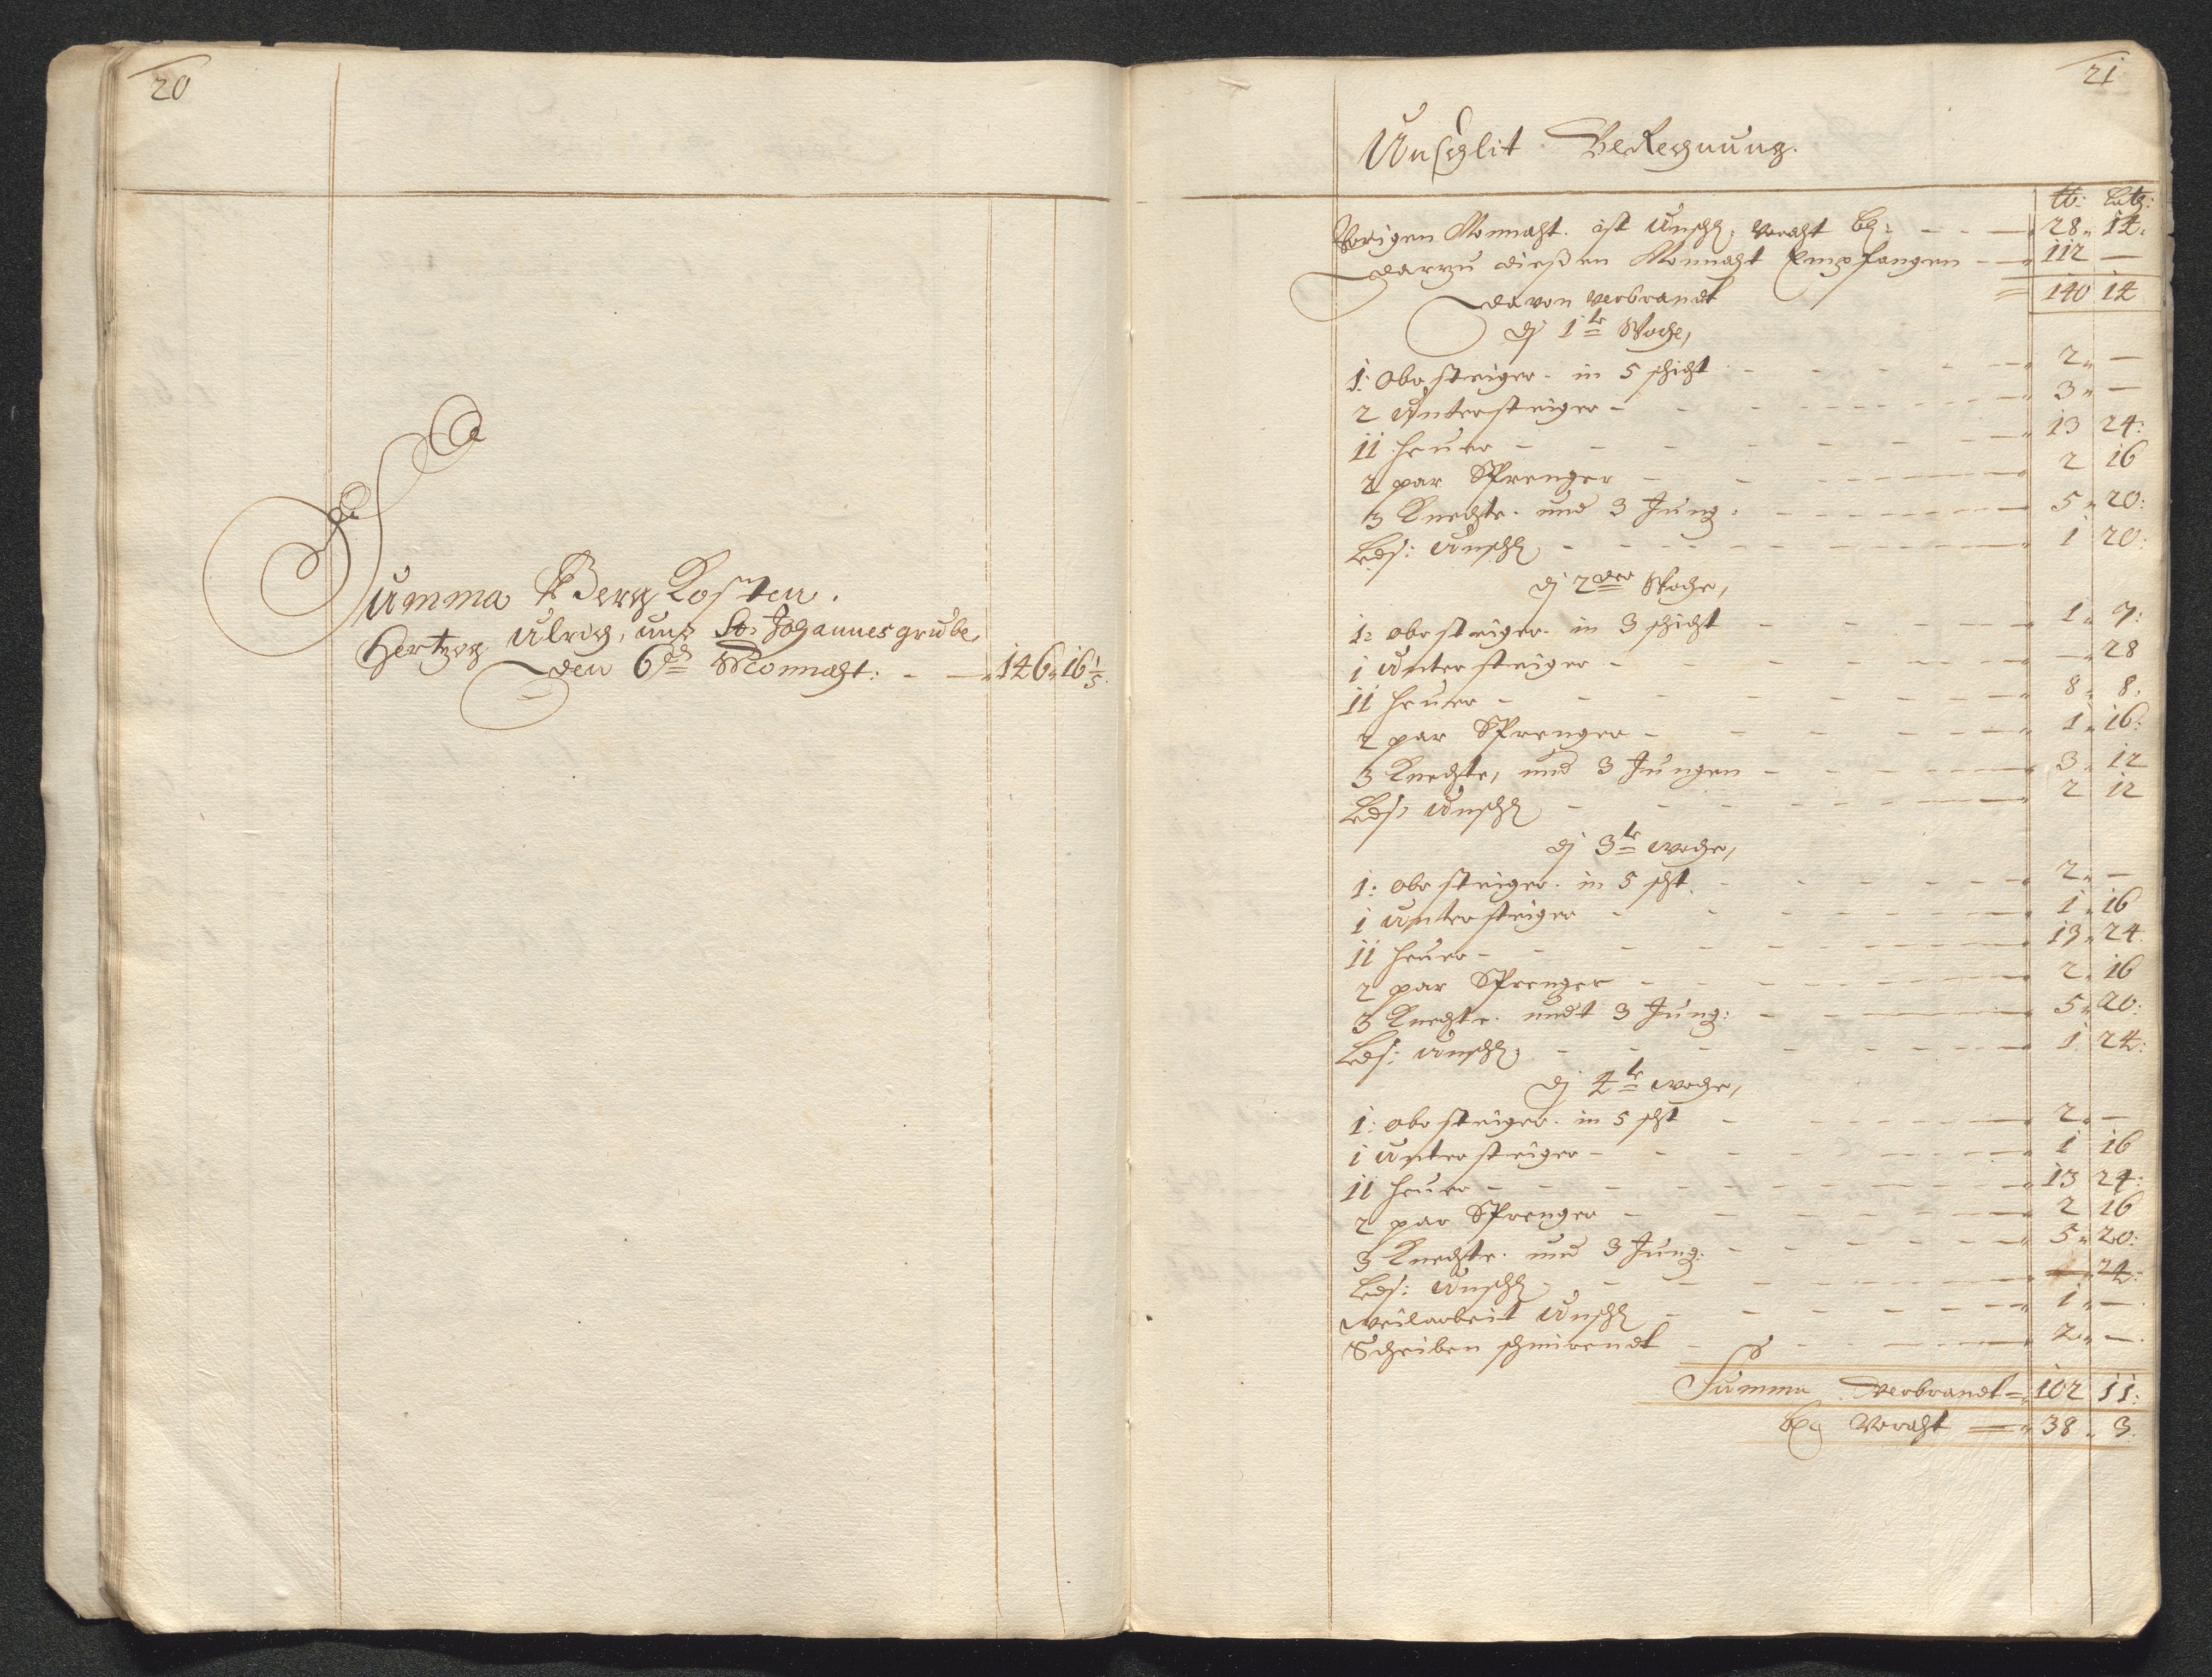 20
Summa Berg Kosten.
Hertzog Ulrich, und St: Johannes grube,
den 6ᵗ Monnaht: 146 16 1/5.
21
Unschlit BeRechnung.
℔: Lotz:
Vorigen Monnaht. ist Unschl: Voraht bl: 28 14.
darzu dießen Monnaht Empfangen 112 —
davon verbrandt 140 14
dj 1te Woche,
1: Obr steiger. in 5 schicht 2 —
2 Untersteiger 3 —
11 heuer 13 24:
2 par Sprenger 2 16
3 Knechte. und 3 Jung: 5 20:
Leds: Unschl 1 20:
dj 2der Woche,
1: obr steiger. in 3 schicht 1 7:
1 Unter steiger — 28
11 heuer 8 8:
2 par Sprenger 1 16:
3 Knechte, und 3 Jungen 3 12
Leds: Unschl 2 12
dj 3te woche,
1: obr steiger. in 5 scht. 2 —
1 Unter steiger 1 16
11 heuer 13 24.
2 par Sprenger 2 16
3 Knechte. undt 3 Jung: 5 20:
Leds: Unschl: 1 24:
dj 4te woche,
1: obr steiger. in 5 scht 2 —
1 Unter steiger 1 16
11 heuer 13 24:
2 par Sprenger 2 16
3 Knechte. und 3 Jung: 5 20:
Leds: Unschl 24:
weilarbeit Unschl 1 —
Scheiben schmirendt 2 —
Summa verbrandt 102 11:
bl: Voraht 38 3.